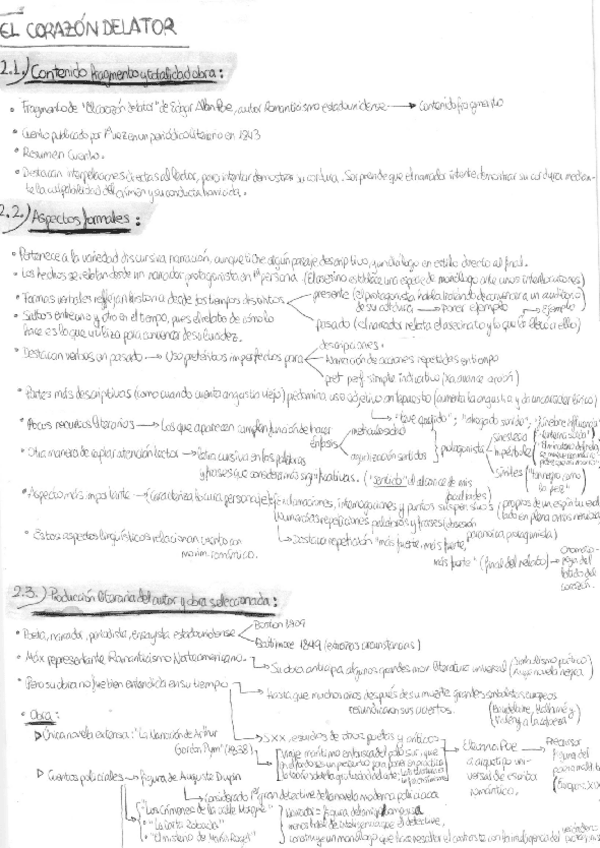 EL CORAZÓN DELATOR
2.1.) Contenido fragmento y totalidad obra:
• Fragmento de "El corazón delator" de Edgar Allan Poe, autor Romanticismo estadounidense → contenido fragmento
• Cuento publicado por 1ª vez en un periódico literario en 1843
• Resumen Cuento.
• Destacan interpelaciones directas al lector, para intentar demostrar su cordura. Sorprende que el narrador intente demostrar su cordura median-
te la culpabilidad del crimen y su conducta
2.2.) Aspectos formales:
• Pertenece a la variedad discursiva narración, aunque tiene algún pasaje descriptivo, y un diálogo en estilo directo al final.
• Los hechos se relatan desde un narrador protagonista en 1ª persona. (El asesino establece una especie de monólogo ante unos interlocutores)
• Formas verbales reflejan historia desde los tiempos distintos
presente (el protagonista habla tratando de convencer a un auditorio
de su cordura → poner ejemplo
• Saltos entre uno y otro en el tiempo, pues el relato de cómo lo
hace es lo que utiliza para convencer de su lucidez.
pasado (el narrador relata el asesinato y lo que lo llevó a ello)
ejemplo
descripciones.
• Destacan verbos en pasado → Uso pretéritos imperfectos para
Narración de acciones repetidas en tiempo
pret. perf. simple indicativo (ya avance acción)
• Partes más descriptivas (como cuando cuenta angustia viejo) predomina uso adjetivo antepuesto (aumenta la angustia y da un carácter
"leve quejido"; "ahogado sonido";
• Pocos recursos literarios → Los que aparecen cumplen función de hacer
énfasis
agudización sentidos
protagonista
sinestesia
símiles ("tan negro como
la pez"
• Otra manera de captar atención lector → letra cursiva en las palabras
y frases que considera más significativas. ("sentido" el alcance de mis
facultades)
• Aspecto más importante → Caracteriza locura personaje
exclamaciones, interrogaciones y puntos suspensivos
propios de un espíritu
numerosas repeticiones palabras y frases (obsesión
paranoica protagonista)
→ Destaca repetición "más fuerte, más fuerte,
más fuerte" (final del relato) → Onomato-
peya del
latido del
corazón.
• Estos aspectos lingüísticos relacionan cuento con
movim. romántico.
2.3.) Producción literaria del autor y obra seleccionada:
• Poeta, narrador, periodista, ensayista estadounidense
Boston 1809
Baltimore 1849 (extrañas circunstancias)
• Máx representante Romanticismo Norteamericano.
→ Su obra anticipa algunos grandes mov. literatura universal
Simbolismo poético
Auge novela negra
• Pero su obra no fue bien entendida en su tiempo
→ Hasta que muchos años después de su muerte grandes simbolistas europeos
reivindicaron sus aciertos.
(Baudelaire, Mallarmé y
Valéry a la cabeza)
• Obra:
S.XX, estudios de otros poetas y críticos
▷ Única novela extensa: "La Narración de Arthur
Gordon Pym" (1838)
Viaje marítimo en busca del polo sur, que
Eterno Poe
Precursor
Figura del
▷ Cuentos policiales → figura de Auguste Dupin
→ considerado 1er gran detective de la novela moderna policiaca
• "Los Crímenes de la calle Morgue"
• "La Carta Robada"
• "El misterio de Marie Roget"
narrador = figura
menos listo de inteligencia que el detective,
construye un monólogo que hace resaltar el contraste con la inteligencia del